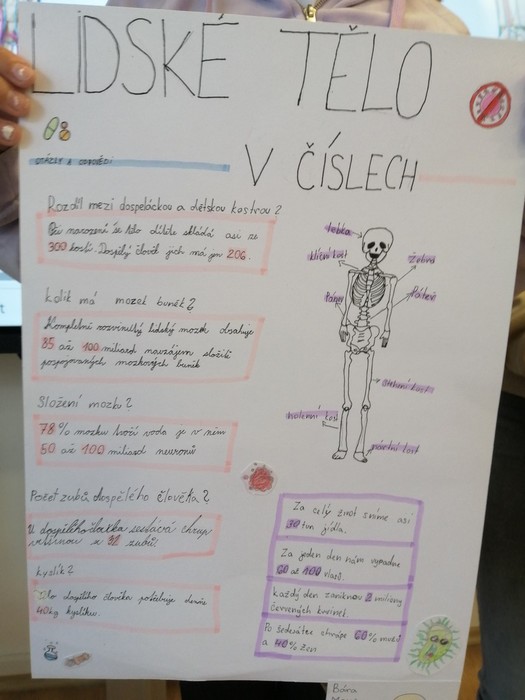 LIDSKÉ TĚLO
V ČÍSLECH
OTÁZKY A ODPOVĚDI
Rozdíl mezi dospeláckou a dětskou kostrou?
Při narození se tělo dítěte skládá asi ze
300 kostí. Dospělý člověk jich má jen 206.
kolik má mozek buněk?
Kompletní rozvinutý lidský mozek obsahuje
85 až 100 miliard navzájem složitě
pospojovaných mozkových buněk
Složení mozku?
78 % mozku tvoří voda je v něm
50 až 100 miliard neuronů
Počet zubů dospělého člověka?
U dospělého člověka sestává chrup
většinou z 32 zubů!
kyslík?
Tělo dospělého člověka potřebuje denně
40kg kyslíku.
lebka
klíční kost
žebra
páteř
stehenní kost
holenní kost
Za celý život sníme asi
30 tun jídla.
Za jeden den nám vypadne
60 až 100 vlasů.
každý den zaniknou 2 miliony
červených krvinek.
Po šedesátce chrápe 60% mužů
a 40% žen
Bára